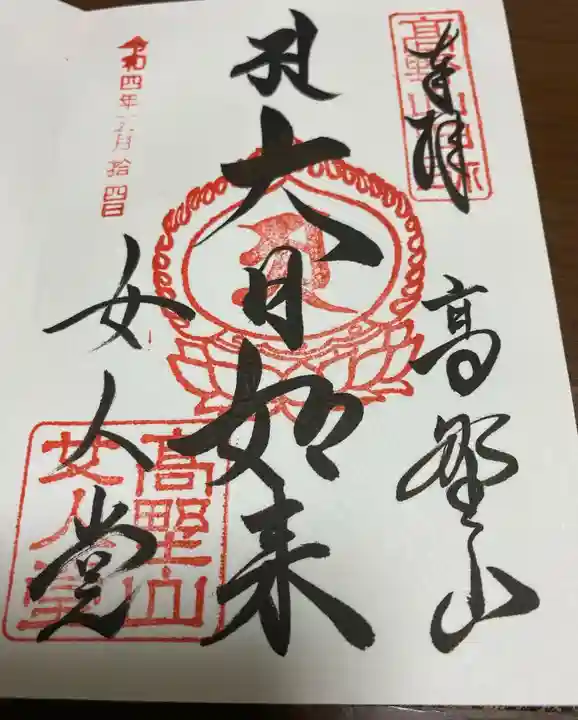 奉拝
高野山
大日如来
女人堂
令和四年
月拾四日
高野山
女人堂